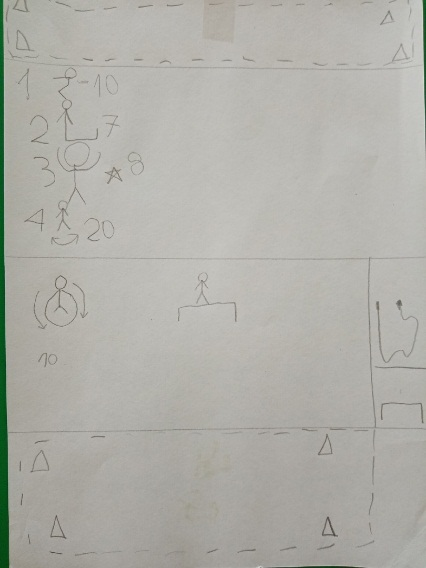 1 -10
2 7
3 8
4 20
10